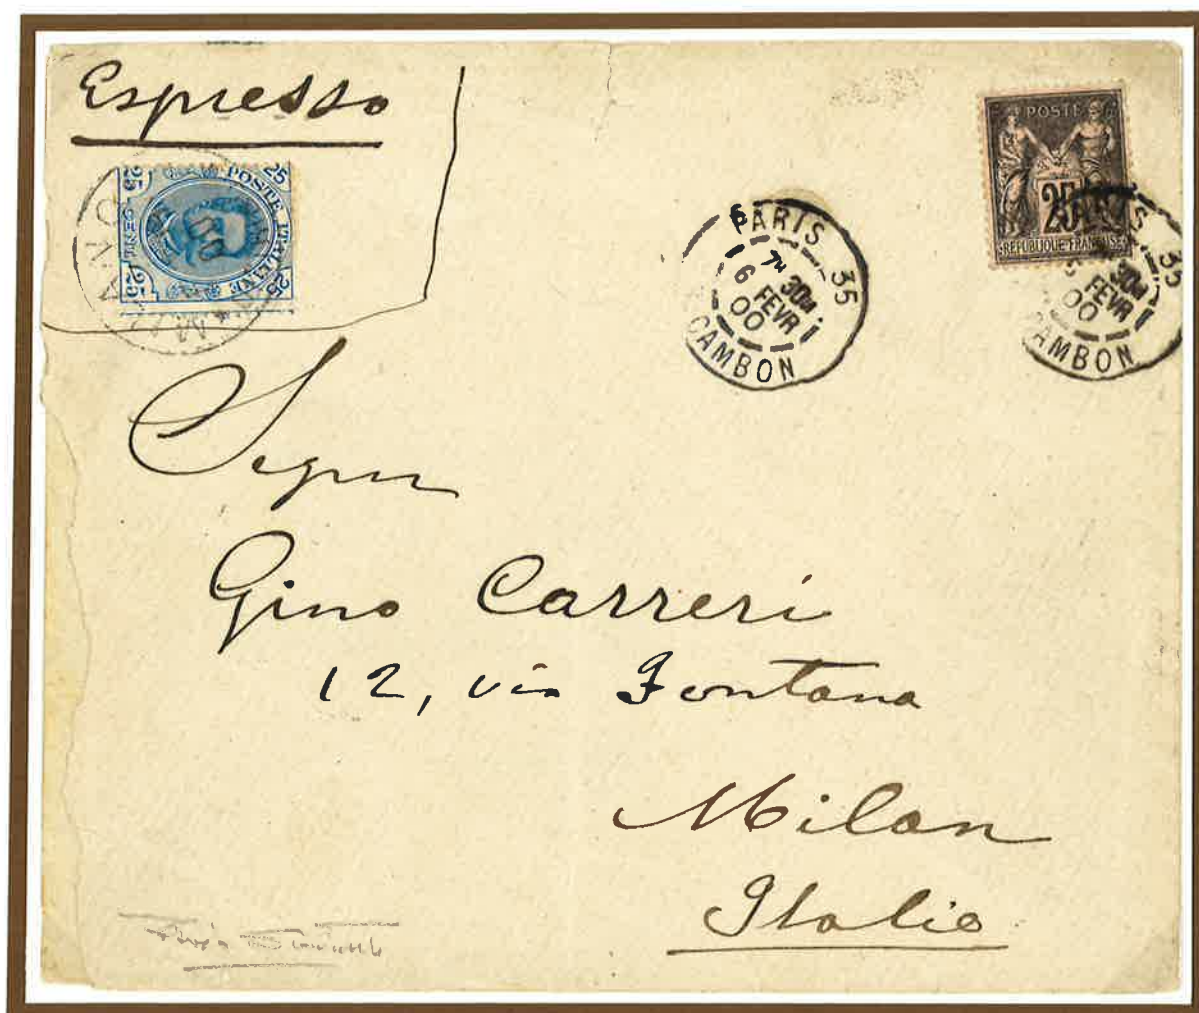 Espresso
25 POSTE ITALIANE 25
25 CENT. 25
MILANO
POSTE
25
REPUBLIQUE FRANCAISE
PARIS 35
7H 30M
6 FEVR
00
CAMBON
35
30M
FEVR
00
CAMBON
Gino Carreri
12, via Fontana
Milan
Italie